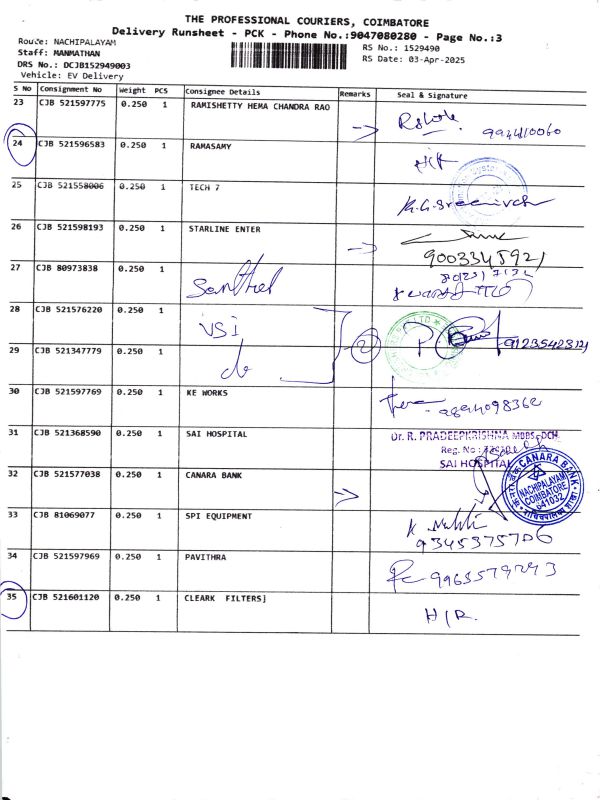 THE PROFESSIONAL COURIERS, COIMBATORE
Delivery Runsheet - PCK - Phone No.:9047080280 - Page No.:3
Route: NACHIPALAYAM
RS No.: 1529490
Staff: MANMATHAN
RS Date: 03-Apr-2025
DRS No.: DCJB152949003
Vehicle: EV Delivery
S No Consignment No Weight PCS Consignee Details Remarks Seal & Signature
23 CJB 521597775 0.250 1 RAMISHETTY HEMA CHANDRA RAO
24 CJB 521596583 0.250 1 RAMASAMY
25 CJB 521558006 0.250 1 TECH 7
K.G.Sreenivas
26 CJB 521598193 0.250 1 STARLINE ENTER
9003345921
27 CJB 80973838 0.250 1
28 CJB 521576220 0.250 1 VSI
2
29 CJB 521347779 0.250 1
30 CJB 521597769 0.250 1 KE WORKS
9894098362
31 CJB 521368590 0.250 1 SAI HOSPITAL
Dr. R. PRADEEPKRISHNA MBBS.,DCH.
Reg. No:
SAI HOSPITAL
32 CJB 521577038 0.250 1 CANARA BANK
CANARA BANK
NACHIPALAYAM
COIMBATORE
641032
33 CJB 81069077 0.250 1 SPI EQUIPMENT
9345375706
34 CJB 521597969 0.250 1 PAVITHRA
9965579293
35 CJB 521601120 0.250 1 CLEARK FILTERS]
H/R.